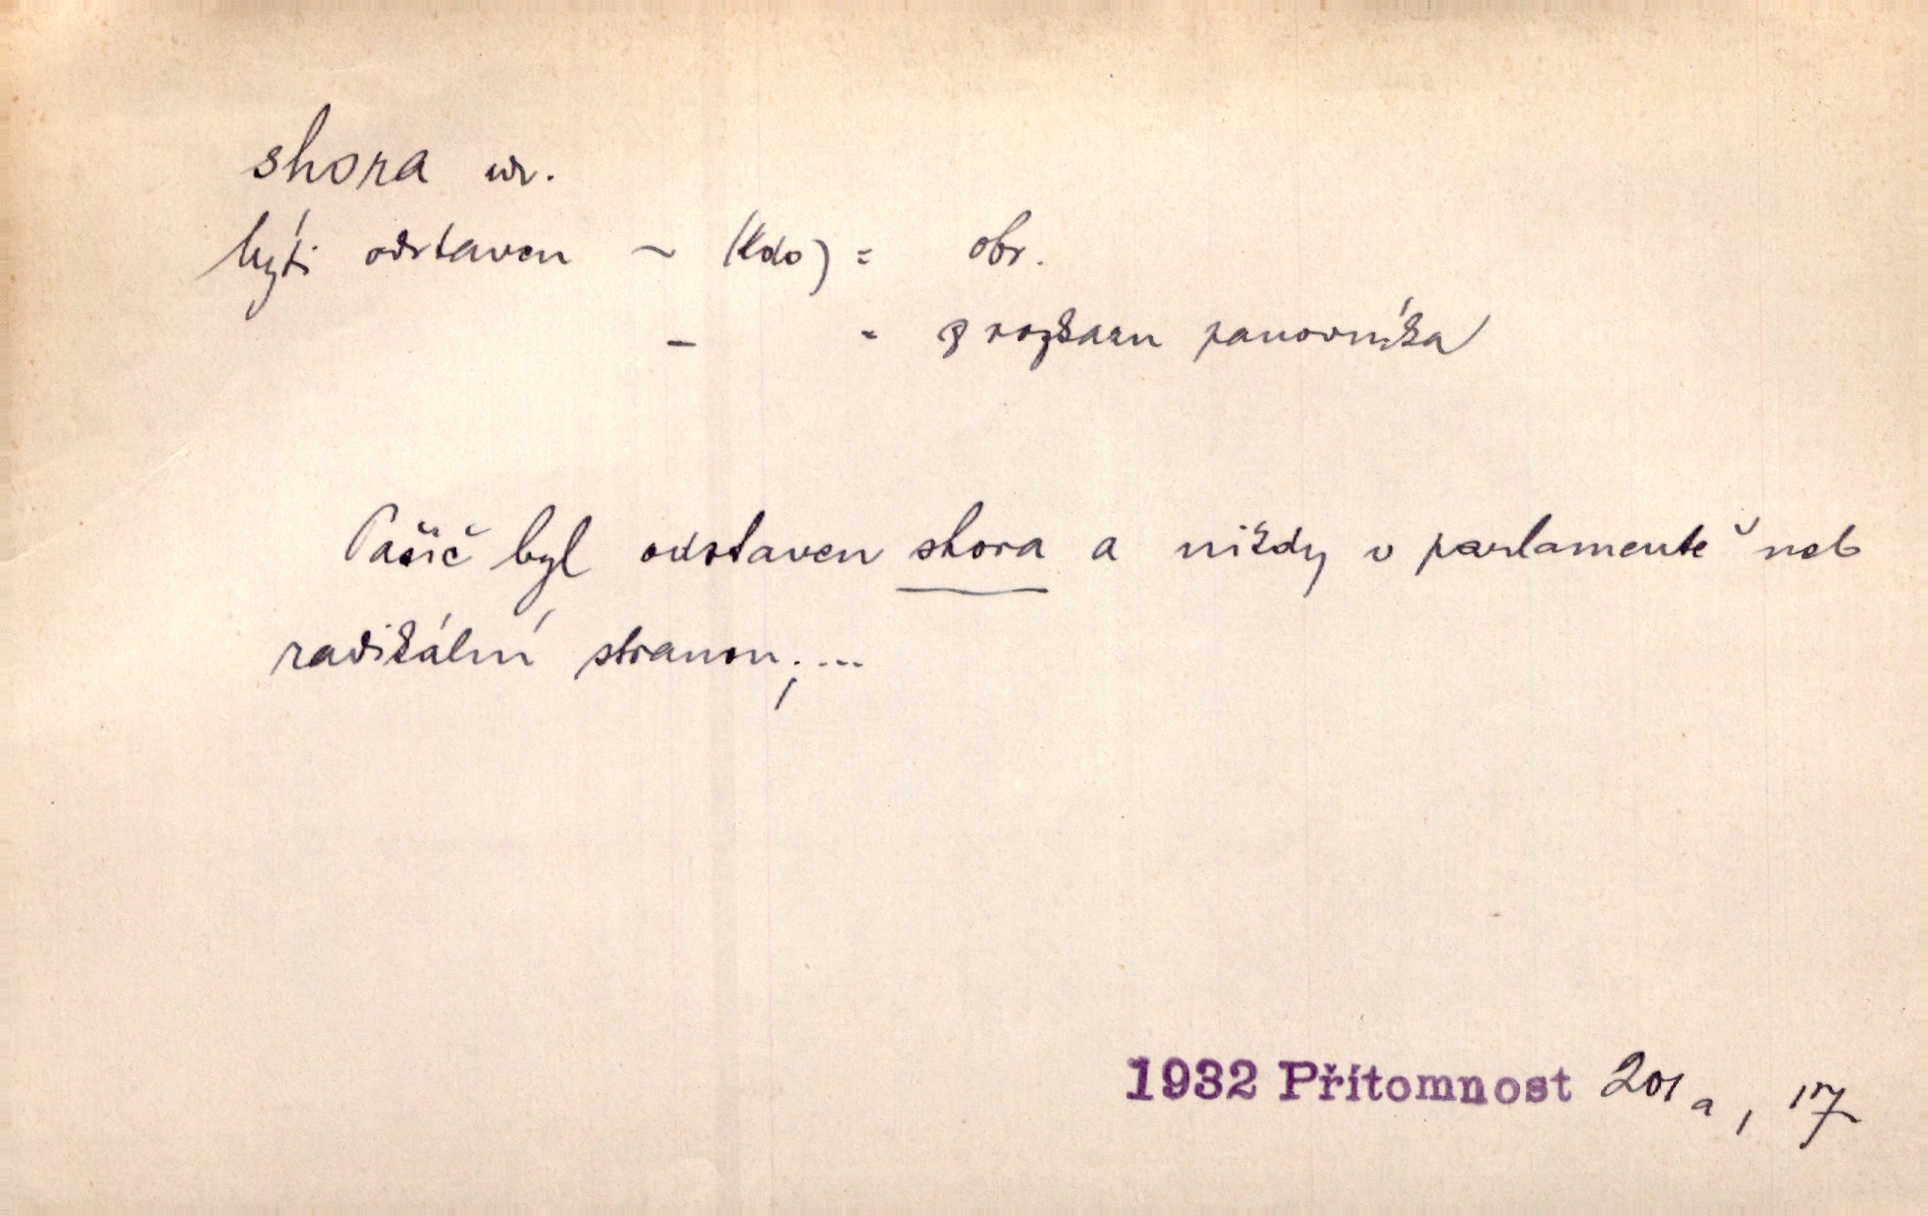 shora adv.
býti odstaven ~ (kdo) = obr.
– = z rozkazu panovníka
Pašič byl odstaven shora a nikdy v parlamentě neb
radikální stranou; ...
1932 Přítomnost 201 a, 17